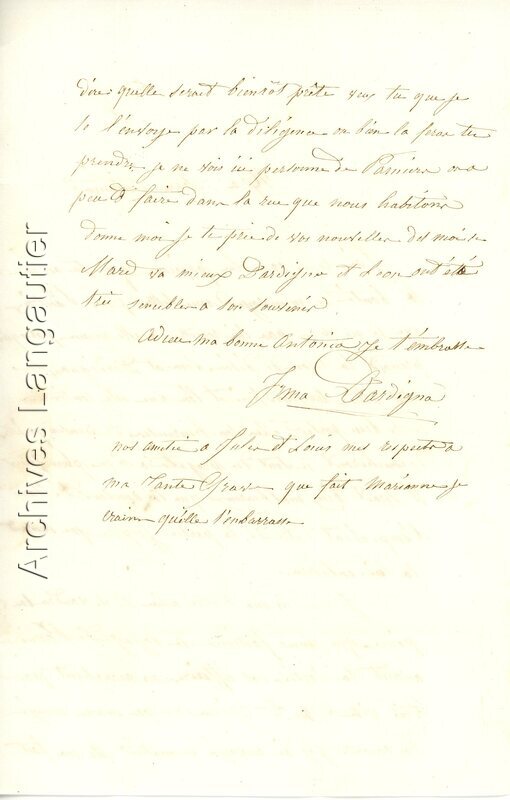 dire quelle serait bientôt prête veux tu que je
te l'envoye par la diligence ou bien la feras tu
prendre, je ne vois ici personne de Pamiers on a
peu à faire dans la rue que nous habitons
donne moi je te prie de vos nouvelles dis moi si
va mieux Dardigna et Léon ont été
très sensibles a son souvenir
adieu ma bonne Antonia je t'embrasse
Irma Dardigna
nos amitié a Jules et Louis mes respects a
ma Tante que fait Marianne je
crains qu'elle t'embarrasse
Archives Langautier